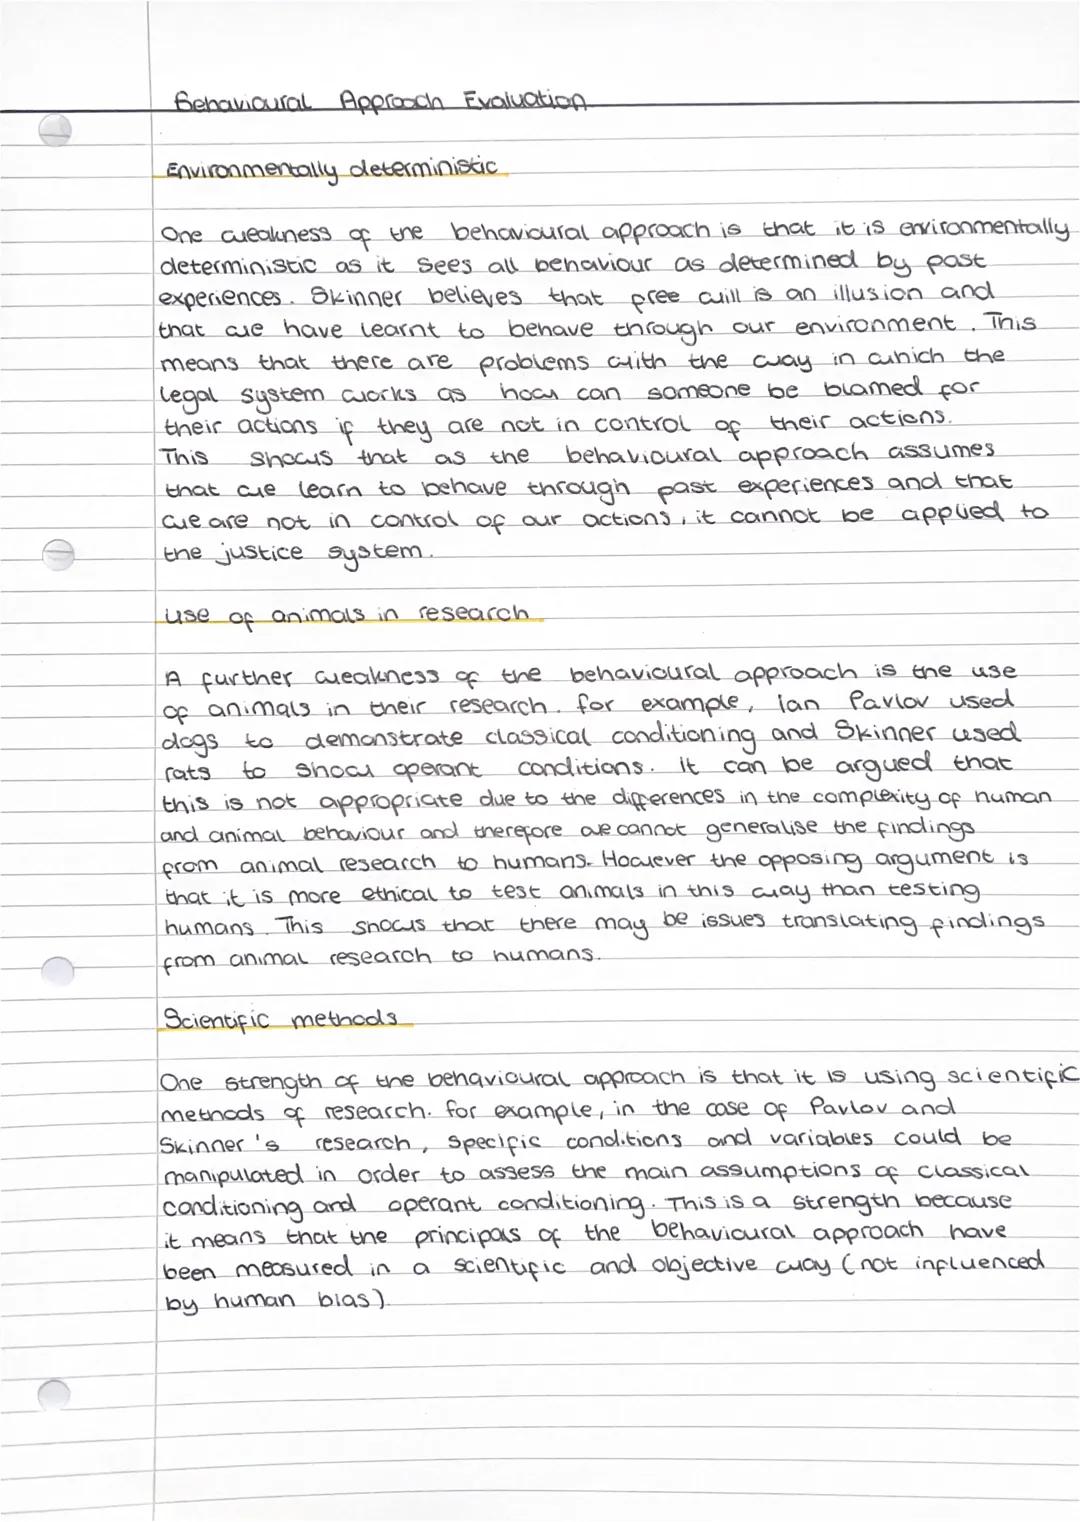 Behavioural Approach Evaluation
Environmentally deterministic
One weakness of the behavioural approach is that it is environmentally
deterministic as it sees all behaviour as determined by past
experiences. Skinner believes that free will is an illusion and
that we have learnt to behave through our environment. This
means that there are problems with the way in which the
legal system works as how can someone be blamed for
their actions if they are not in control of their actions.
This shows that as the behavioural approach assumes
that we learn to behave through past experiences and that
we are not in control of our actions, it cannot be applied to
the justice system.
use of animals in research
A further weakness of the behavioural approach is the use
of animals in their research. for example, Ian Pavlov used
dogs to demonstrate classical conditioning and Skinner used
rats to show operant conditions. it can be argued that
this is not appropriate due to the differences in the complexity of human
and animal behaviour and therefore we cannot generalise the findings
from animal research to humans. However the opposing argument is
that it is more ethical to test animals in this way than testing
humans. This shows that there may be issues translating findings
from animal research to humans.
Scientific methods
One strength of the behavioural approach is that it is using scientific
methods of research. for example, in the case of Pavlov and
Skinner's research, specific conditions and variables could be
manipulated in order to assess the main assumptions of classical
conditioning and operant conditioning. This is a strength because
it means that the principals of the behavioural approach have
been measured in a scientific and objective way (not influenced
by human bias).